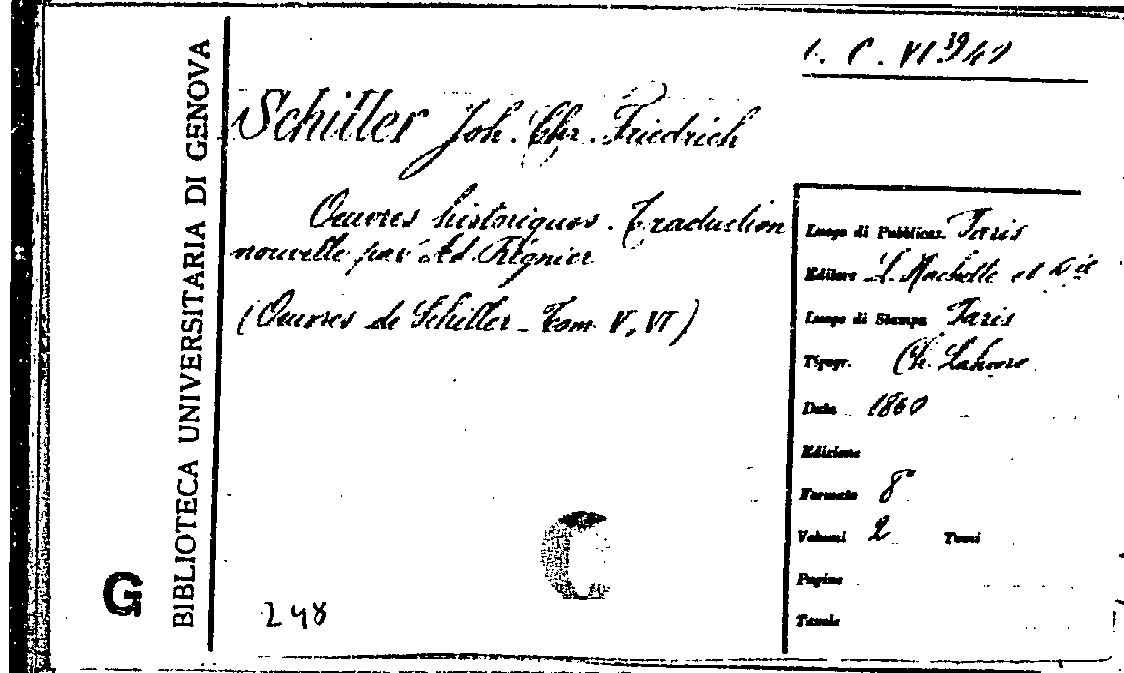 BIBLIOTECA UNIVERSITARIA DI GENOVA
G
Schiller Joh. Chr. Friedrich
Oeuvres historiques. Traduction
nouvelle par Ad. Régnier
(Oeuvres de Schiller - Tom. V, VI)
248
Luogo di Pubblicaz. Paris
Editore L. Hachette et Cie
Luogo di Stampa Paris
Tipogr. Ch. Lahure
Data 1860
Edizione
Formato 8°
Volumi 2 Tomi
Pagine
Tavole